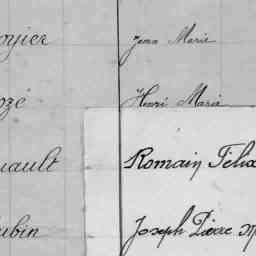 oyier Jean Marie
ozé Henri Marie
uault Romain Félix
ubin Joseph Pierre M